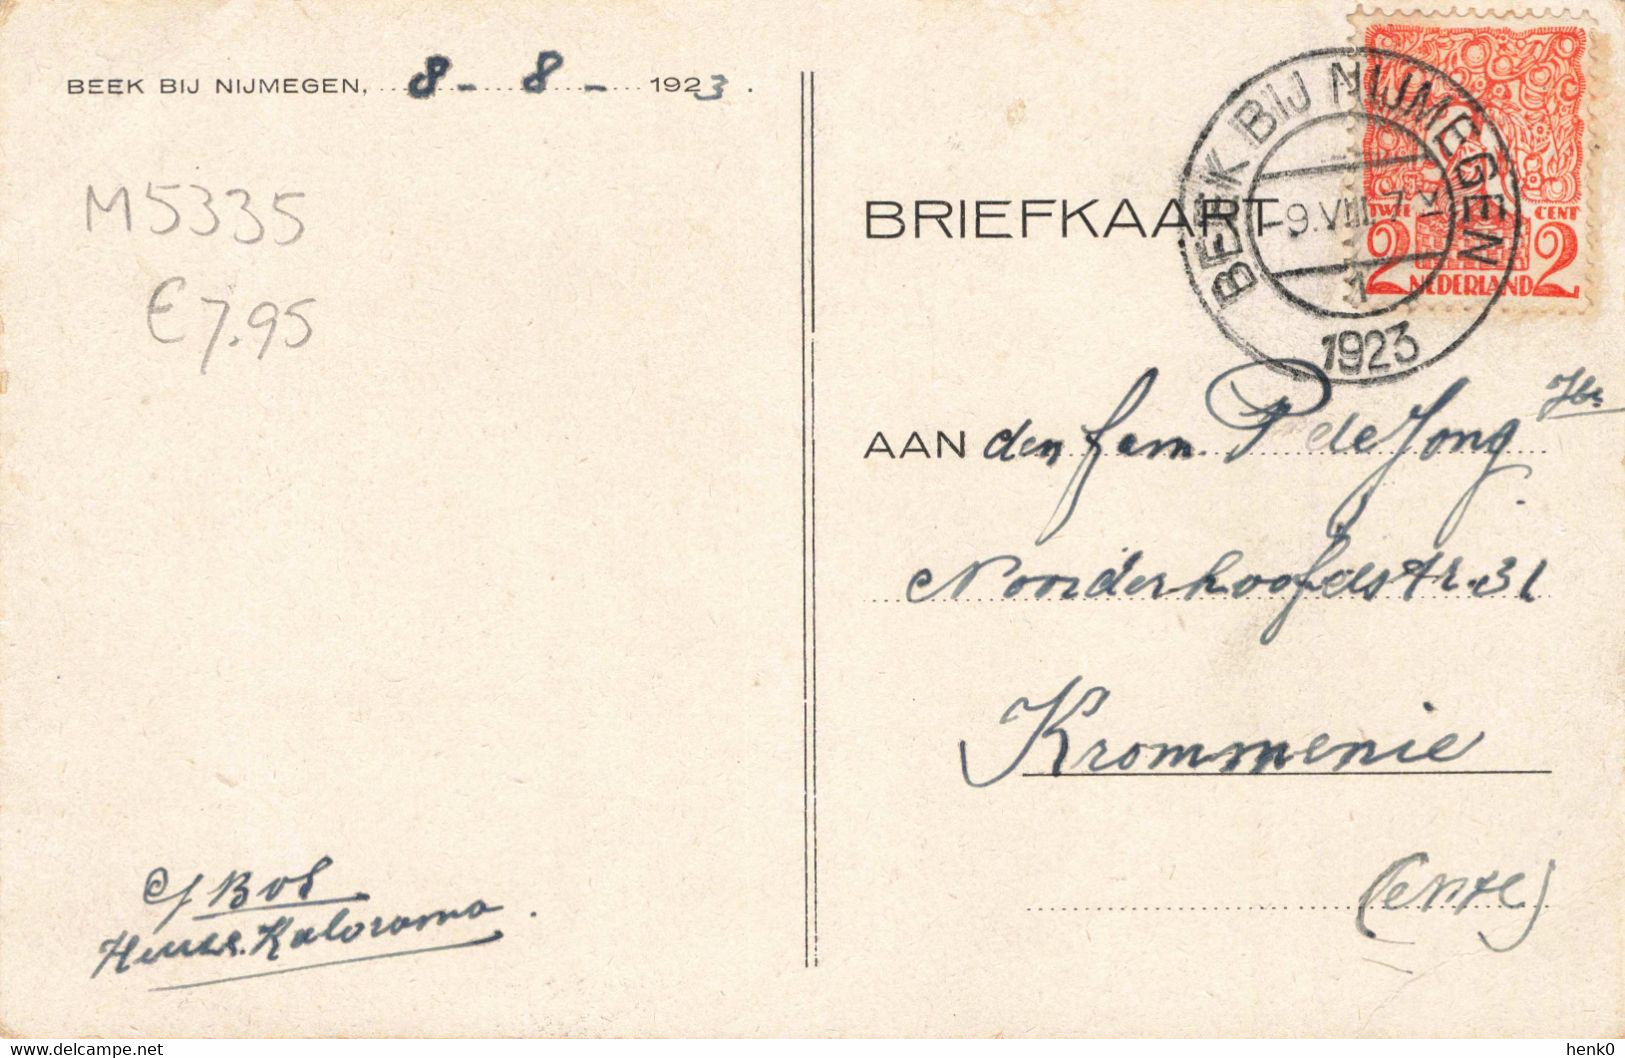 BEEK BIJ NIJMEGEN, 8 - 8 - 1923.
M5335
€7.95
Huize Kalorama.
BRIEFKAART
BEEK BIJ NIJMEGEN
-9.VIII. 7
1923
TWEE CENT
2 NEDERLAND 2
AAN den fam. P de Jong
Noorderhoofdstr. 31
Krommenie
delcampe.net
henk0